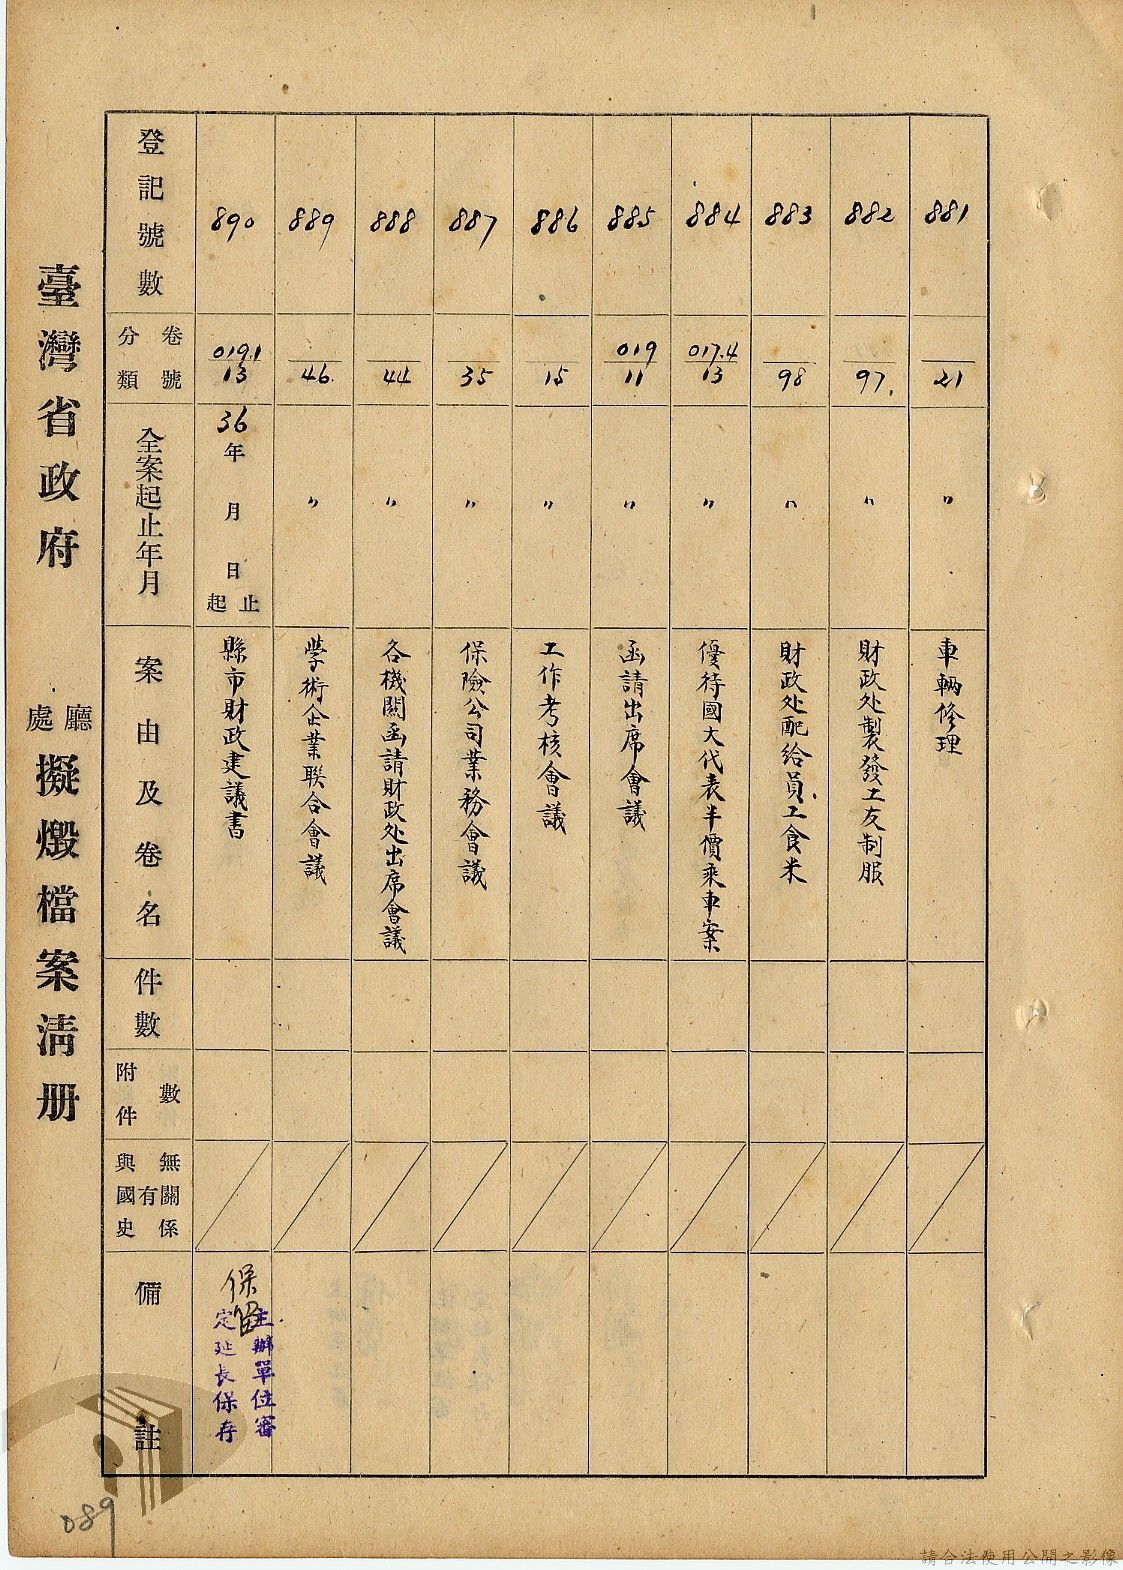 臺灣省政府
廳
處
擬燬檔案清册
登記號數
卷號
分類
全案起止年月
案由及卷名
件數
附件
數
與國史
有
無關係
備註
881
21
〃
車輛修理
882
97.
〃
財政处製發工友制服
883
98
〃
財政处配給員工食米
884
017.4
13
〃
優待國大代表半價乘車案
885
019
11
〃
函請出席會議
886
15
〃
工作考核會議
887
35
〃
保險公司業務會議
888
44
〃
各機關函請財政处出席會議
889
46.
〃
學術企業联合會議
890
019.1
13
36
年月日
止
起
縣市財政建議書
保留
主辦單位審
定延長保存
089
請合法使用公開之影像